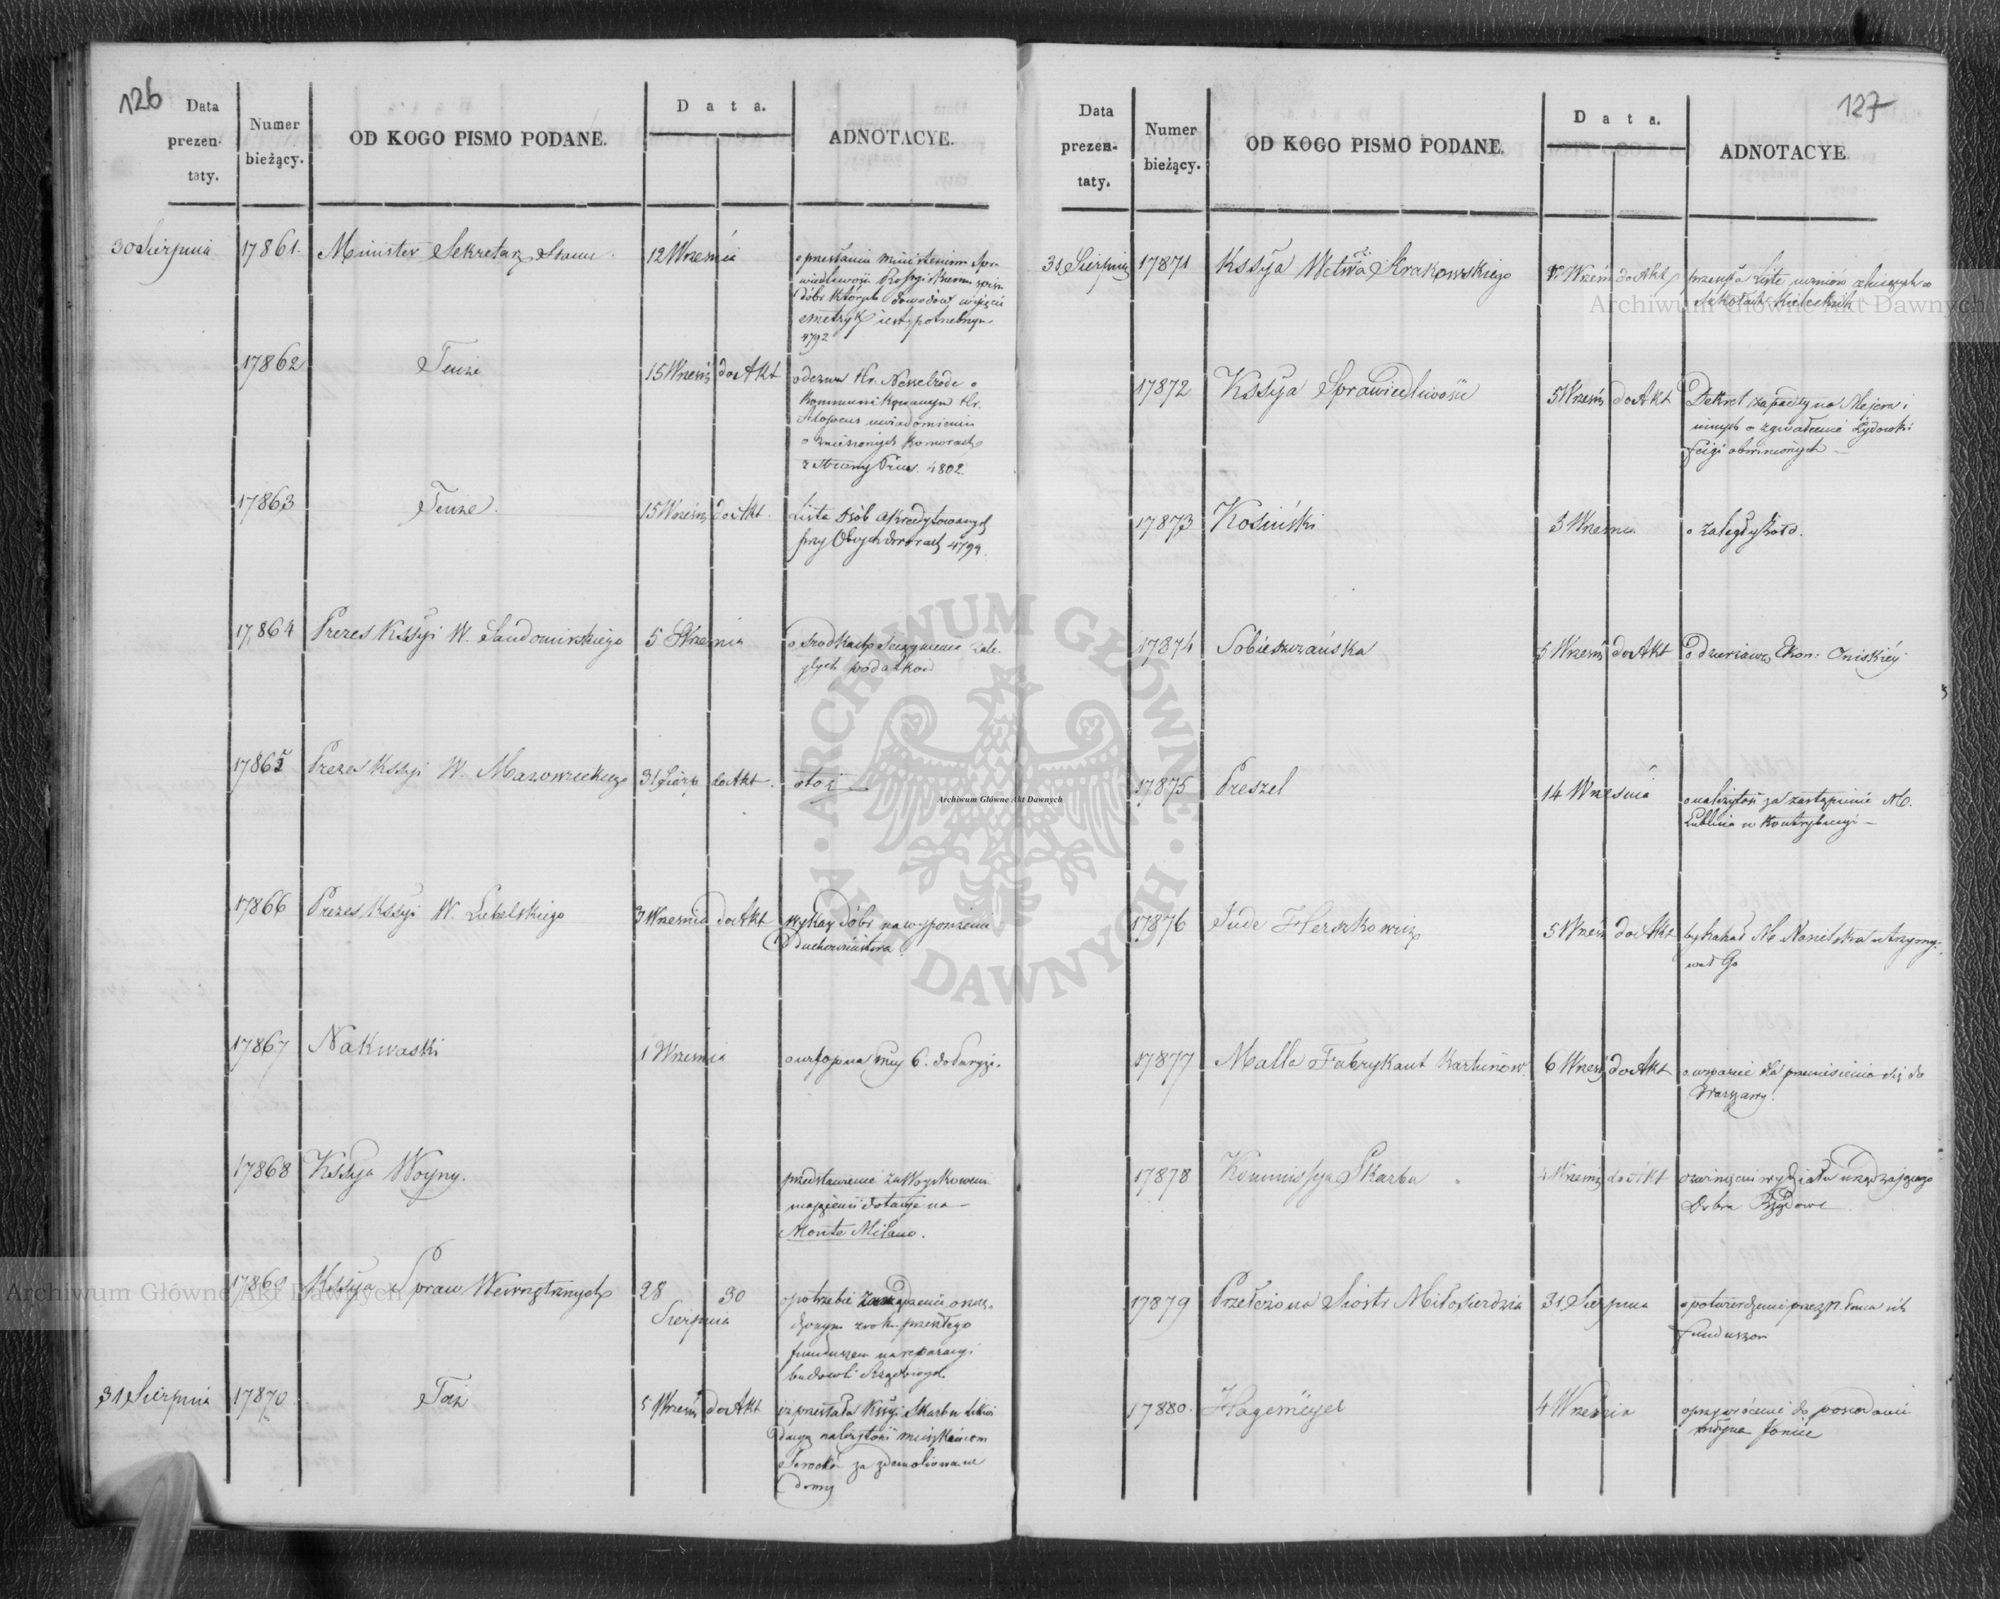 126
Data prezen- taty.
Numer bieżący.
OD KOGO PISMO PODANE.
Data.
ADNOTACYE.
30 Sierpnia 17861. Minister Sekretarz Stanu. 12 Września
o przesłaniu Ministerium Spra-
dóbr których dowodów
4792
17862 Tenże 15 Wrześ do Akt
odezwa Hr. Nesselrode o
Hr.
Alopeus
o zniesionych komorach
z strony Prus. 4802.
17863 Tenże. 15 Wrześ do Akt.
Lista Osób akredytowanych
przy Obcych dworach 4794.
17864 Prezes Kssyi W. Sandomirskiego 5 Września
o środkach ściągnienia zale-
głych podatków
17865 Prezes Kssyi W. Mazowieckiego 31 Sierp do Akt.
toż
17866 Prezes Kssyi W. Lubelskiego 3 Września do Akt
wykaz dóbr na wyposażenie
Duchowieństwa.
17867 Nakwaski 1 Września
o urlop na mcy 6. do Paryża.
17868 Kssya Woyny.
przedstawienie za Woyskowemi
mającemi dotacje na
Monte Milano.
17869 Kssya Spraw Wewnętrznych 28 30 Sierpnia
o potrzebie zarządzenia
funduszem na reparacyi
budowli Rządowych
31 Sierpnia 17870 Taż 5 Wrześ do Akt
iż przesłała Kssyi Skarbu
należytości mieszkańcom
Serocka za zdemoliowane
domy
127
Data prezen- taty.
Numer bieżący.
OD KOGO PISMO PODANE.
Data.
ADNOTACYE.
31 Sierpnia 17871 Kssya Wctwa Krakowskiego Wrześ do Akt
przesyła Listę uczniów
Szkołach Kieleckich
17872 Kssya Sprawiedliwości 5 Wrześ do Akt
Dekret zapadły na Mejera i
innych o zgwałcenie Żydowki
Feigi obwinionych
17873 Kosiński 3 Września
o zaległy żołd.
17874 Sobieszczańska 5 Wrześ do Akt
o dzierżawę Ekon:
17875 Preszel 14 Września
o należytość za zastąpienie M.
Lublina w Kontrybucyi
17876 Jude Herszkowicz 5 Wrześ do Akt
by kahał M. Nasielska utrzymy-
wał Go
17877 Malle Fabrykant Kartunów 6 Wrześ do Akt
o wsparcie dla przeniesienia się do
Warszawy.
17878 Kommissya Skarbu Wrześ do Akt
o zwinięciu wydziału urządzającego
Dobra Rządowe
17879 Przełożona Sióstr Miłosierdzia 31 Sierpnia
o potwierdzenie przez N. Pana ich
funduszów
17880. Hagemeyer 4 Września
o przywrócenie do posiadania
młyna
Archiwum Główne Akt Dawnych
Archiwum Główne Akt Dawnych
Archiwum Główne Akt Dawnych
ARCHIWUM GŁÓWNE AKT DAWNYCH